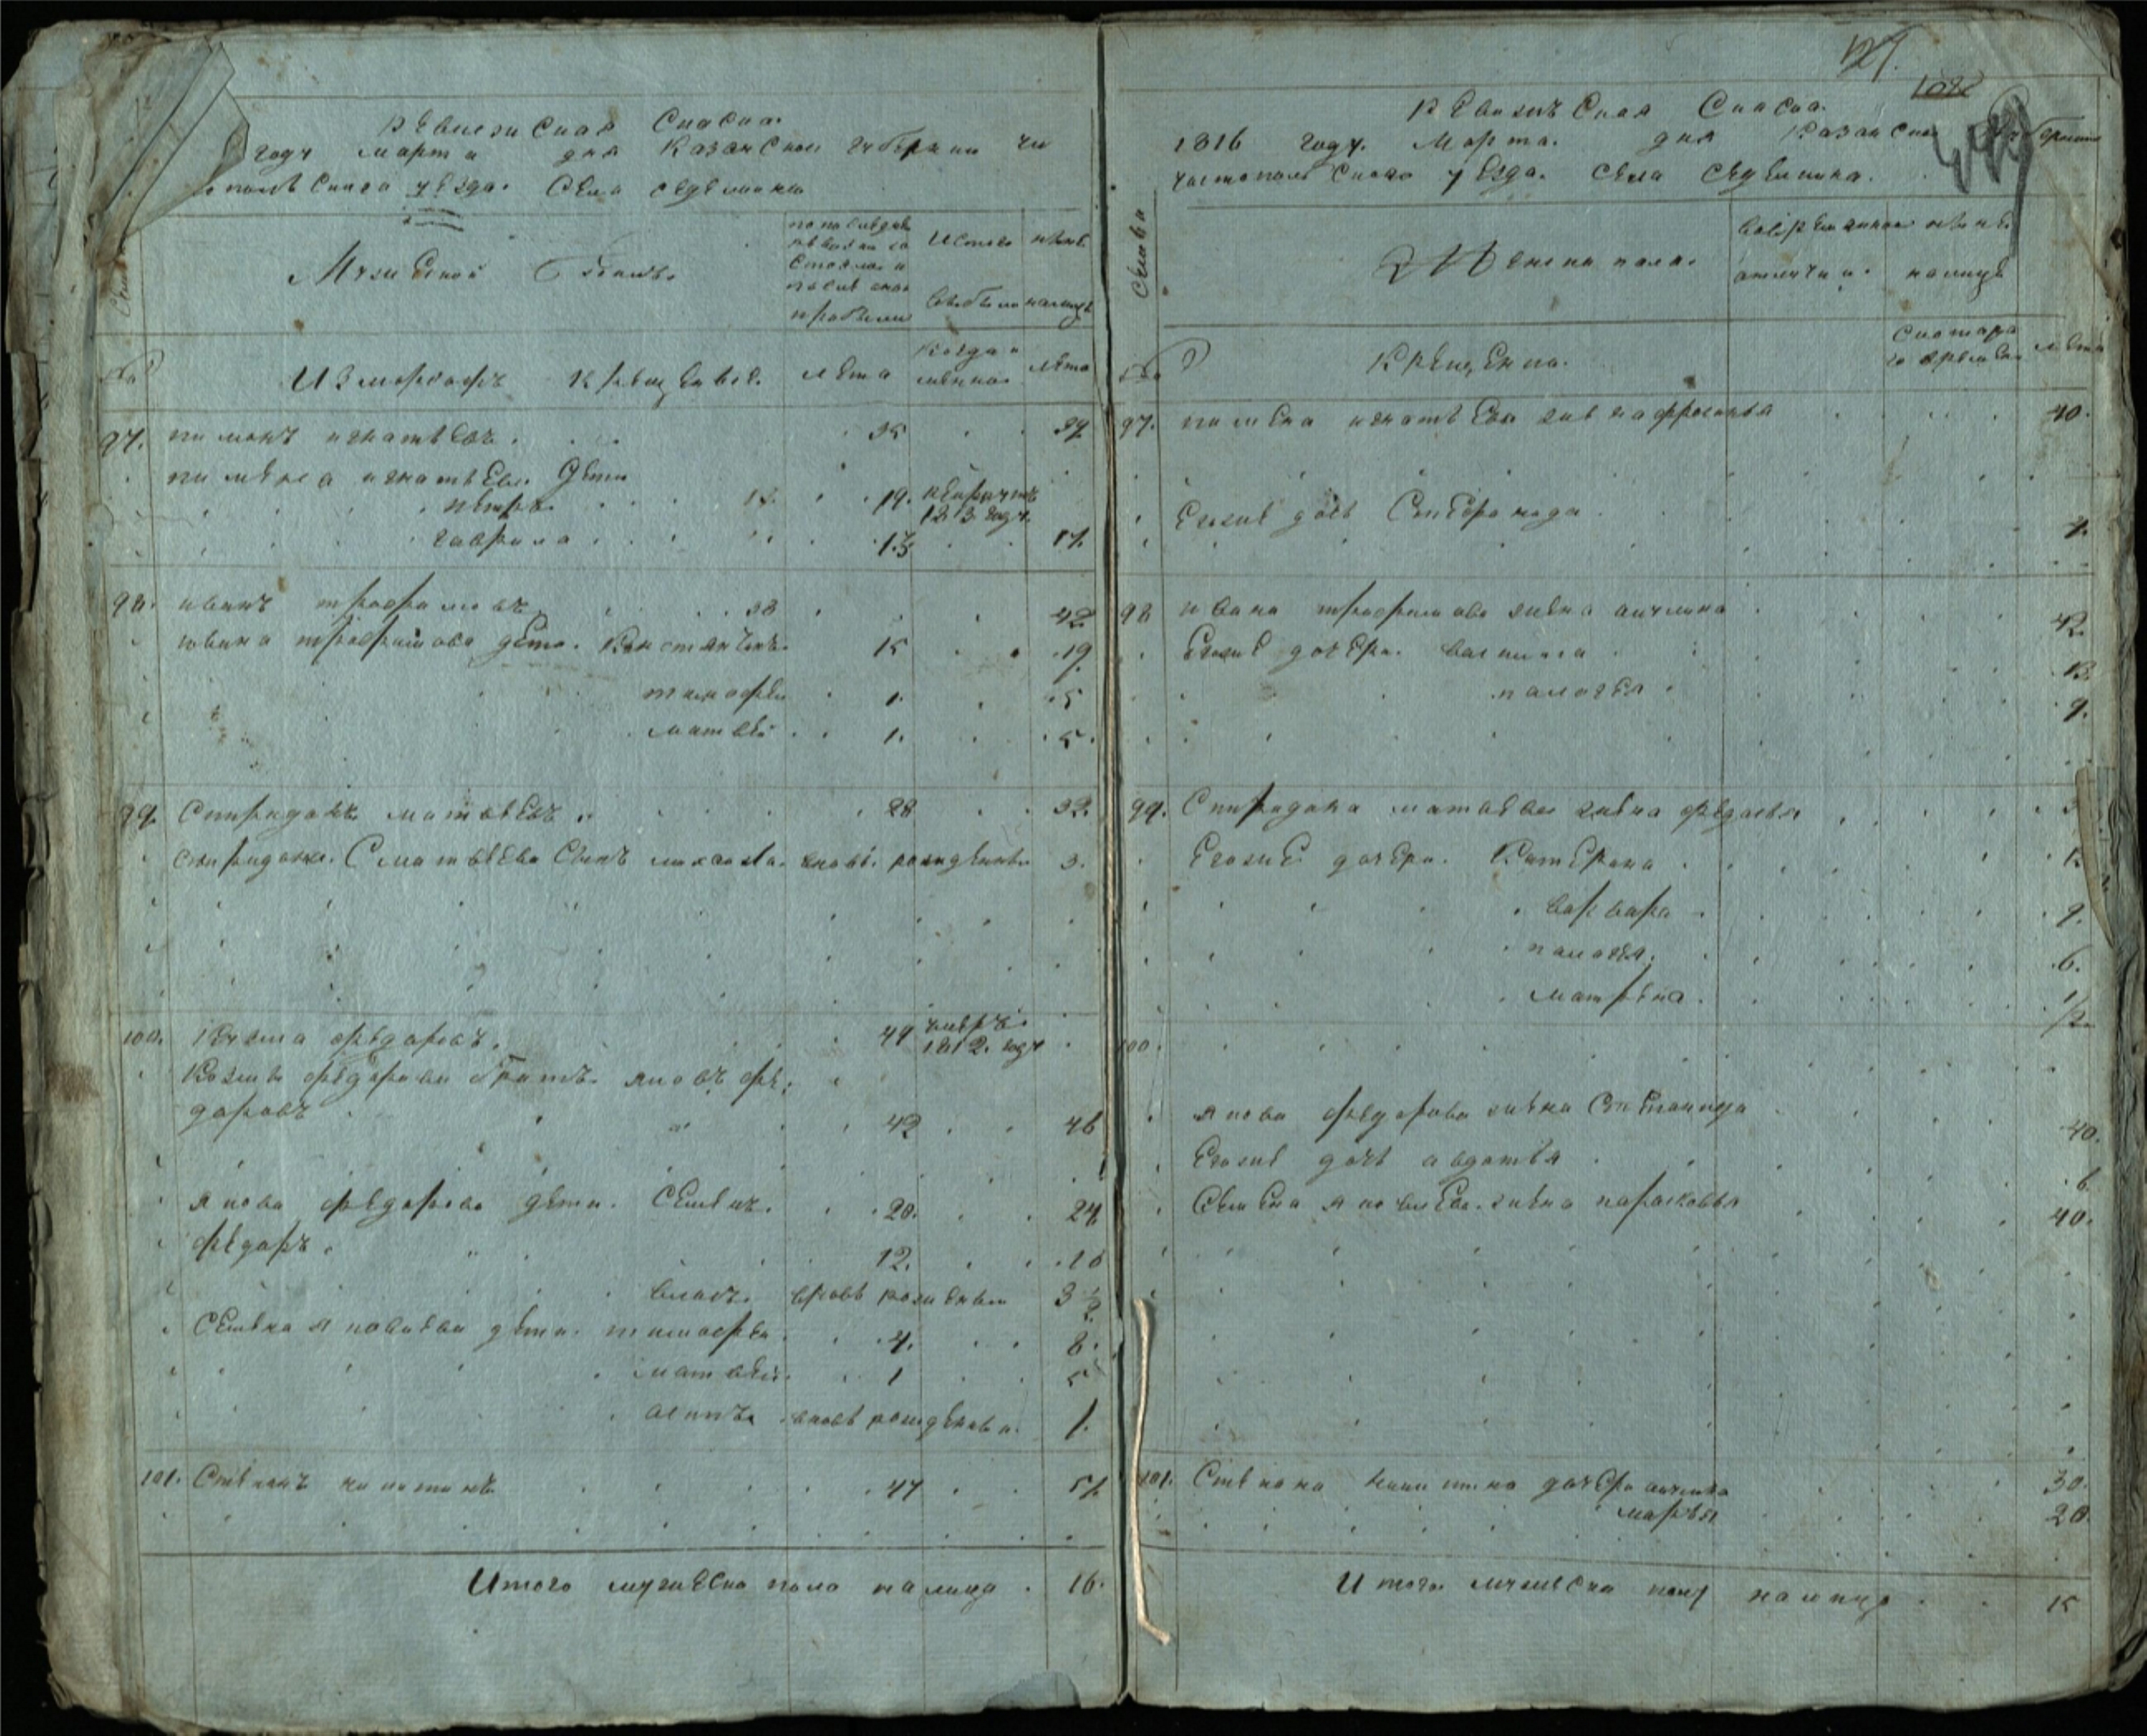 Ревизская Скаска.
году марта дня Казанской губернии чи
стопольскаго уезда. Села седелкина
Семьи
Мужеской полъ.
по последней ревизии состояло и после оной прибыло
Истого выбыло
ныне налицо
Измордофъ крещеные.
лета
Когда именно
лета
97. пиманъ игнатьевъ. 35 39
пимена игнатьева дети
петръ. 15. 19. рекрутъ 1813 году
гаврила 13 17
98. иванъ трофимовъ 38 42
ивана трофимова дети. Константинъ. 15 19
тимофеи 1. 5
матвеи 1. 5.
99 Спиридонъ матвеевъ 28 32.
спиридона матвеева Сынъ михаила. вновь рожденны 3.
100. Кузма федаровъ. 49 умеръ. 1812. году
Козмы федорова братъ яковъ фе:
доровъ 42 46
якова федорова дети. Семенъ. 20. 24
федаръ. 12. 16
власъ. вновь рожденыи 3 1/2
Семена яковлева дети. тимофеи 4. 8.
матвеи. 1 5
осипъ. вновь рожденыи. 1.
101. Степанъ никитинъ 47 51
Итого мужеска пола налицо 16.
127.
1082
Ревизская Скаска.
1816 году. Марта. дня Казанской губернии
чистопольскаго уезда. села седелкина.
Семьи
Женска пола.
Вовременной отлучки.
ныне налицо
Крещена.
Скотораго времени
лета
97. пимена игнатьева жена афросинья 40.
Егоже дочь Стефанида 7.
98 ивана трофимова жена анулина 42.
Егоже дочери. василиса 13.
палагея 9.
99. Спиридона матвеева жена федосья
Егоже дочери. Катерина
варвара 9.
палагея. 6.
матрена. 1/2
100.
якова федорова жена Степанида 40.
Егоже дочь авдотья 6.
Семена яковлева. жена парасковья 40.
101. Степана никитина дочери анулина 30.
марья 20.
Итого мужеска полу налицо 15